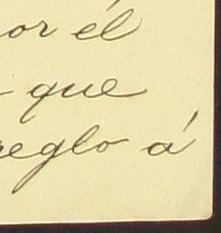 por él
que
reglo á